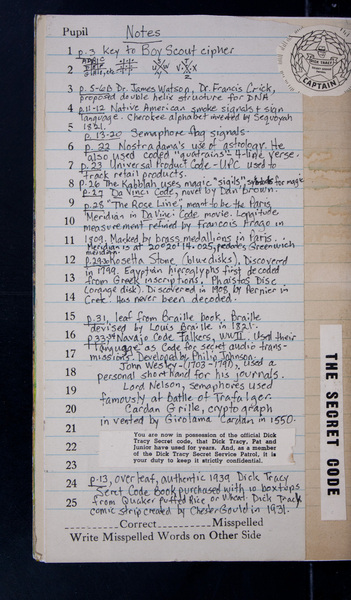 Pupil Notes
1 p.3 Key to Boy Scout cipher
2
3 p. 5-6B Dr. James Watson, Dr. Francis Crick,
proposed double helix structure for DNA
4 p.11-12 Native American smoke signals + sign
language. Cherokee alphabet invented by Sequoyah
5 1821.
p. 13-20 Semaphore flag signals.
6 p. 22 Nostradama's use of astrology. He
also used coded "quatrains" 4-line verse.
7 p. 23 Universal Product Code - UPC used to
track retail products.
8 p.26 The Kabblah uses magic "sigils", symbols for magic
p.27 Da Vinci Code, novel by Dan Brown.
9 p.25 "The Rose Line", meant to be the Paris
10 Meridian in DaVinci Code movie. Longitude
measurement refined by Francois Arago in
11 1809. Marked by brass medallions in Paris.
Meridian is at 20°20'14.025, predates Greenwich
meridian.
12 Rosetta Stone (blue disks), Discovered
in 1799. Egyptian hieroglyphs first decoded
13 from Greek inscriptions, Phaistos Disc
(orange disk). Discovered in 1908 by Pernier in
14 Crete. Has never been decoded.
15 p.31, leaf from Braille book. Braille
devised by Louis Braille in 1821.
16 Navajo Code Talkers, WWII. Used their
17 language as Code for secret audio trans-
missions. Developed by Philip Johnson.
18 John Wesley - (1703-1791), used a
personal shorthand for his journals.
19 Lord Nelson, semaphores used
20 famously at battle of Trafalgar.
Cardan Grille, cryptograph
21 invented by Girolama Cardan in 1550.
22 You are now in possession of the official Dick
Tracy Secret code, that Dick Tracy, Pat and
Junior have used for years. And, as a member
of the Dick Tracy Secret Service Patrol, it is
23 your duty to keep it strictly confidential.
24 p-13, overleaf, authentic 1939 Dick Tracy
Secret Code Book purchased with 10 boxtops
25 from Quaker Puffed Rice or Wheat. Dick Tracy
comic strip created by Chester Gould in 1931.
Correct Misspelled
Write Misspelled Words on Other Side
CAPTAIN
THE SECRET CODE